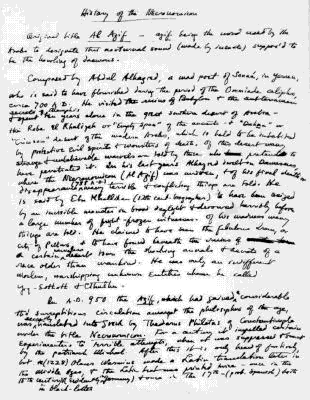 History of the Necronomicon
Original title Al Azif — azif being the word used by the
Arabs to designate that nocturnal sound (made by insects) suppos'd to
be the howling of daemons.
Composed by Abdul Alhazred, a mad poet of Sanaá, in Yemen,
who is said to have flourished during the period of the Ommiade caliphs,
circa 700 A.D. He visited the ruins of Babylon & the subterranean
secrets of Memphis
& spent ten years alone in the great southern desert of Arabia—
the Roba El Khaliyeh or "Empty Space" of the ancients & "Dahna" or
"Crimson" desert of the modern Arabs, which is held to be inhabited
by protective evil spirits & monsters of death. Of this desert many
strange & unbelievable marvels are told by those who pretend to
have penetrated it. In his last years Alhazred dwelt in Damascus,
where the Necronomicon (Al Azif) was written, & of his final death or
disappearance (738 A.D.) many terrible & conflicting things are told. He
is said by Ebn Khallikan (12th cent. biographer) to have been seized
by an invisible monster in broad daylight & devoured horribly before
a large number of fright-frozen witnesses. Of his madness many
things are told. He claimed to have seen the fabulous Irem, or
City of Pillars, & to have found beneath the ruins of
a certain nameless desert town the shocking annals & secrets of a
race older than mankind. He was only an indifferent
Moslem, worshipping unknown Entities whom he called
Yog-Sothoth & Cthulhu.
In A.D. 950 the Azif, which had gained considerable
tho' surreptitious circulation amongst the philosophers of the age,
was secretly translated into Greek by Theodorus Philetas of Constantinople
under the title Necronomicon. For a century it impelled certain
experimenters to terrible attempts, when it was suppressed & burnt
by the patriarch Michael. After this it is only heard of furtively,
but (1228) Olaus Wormius made a Latin translation later in
the Middle Ages, & the Latin text was printed twice — once in the
15th century in black-letter (evidently in Germany) & once in the 17th—(prob. Spanish) both